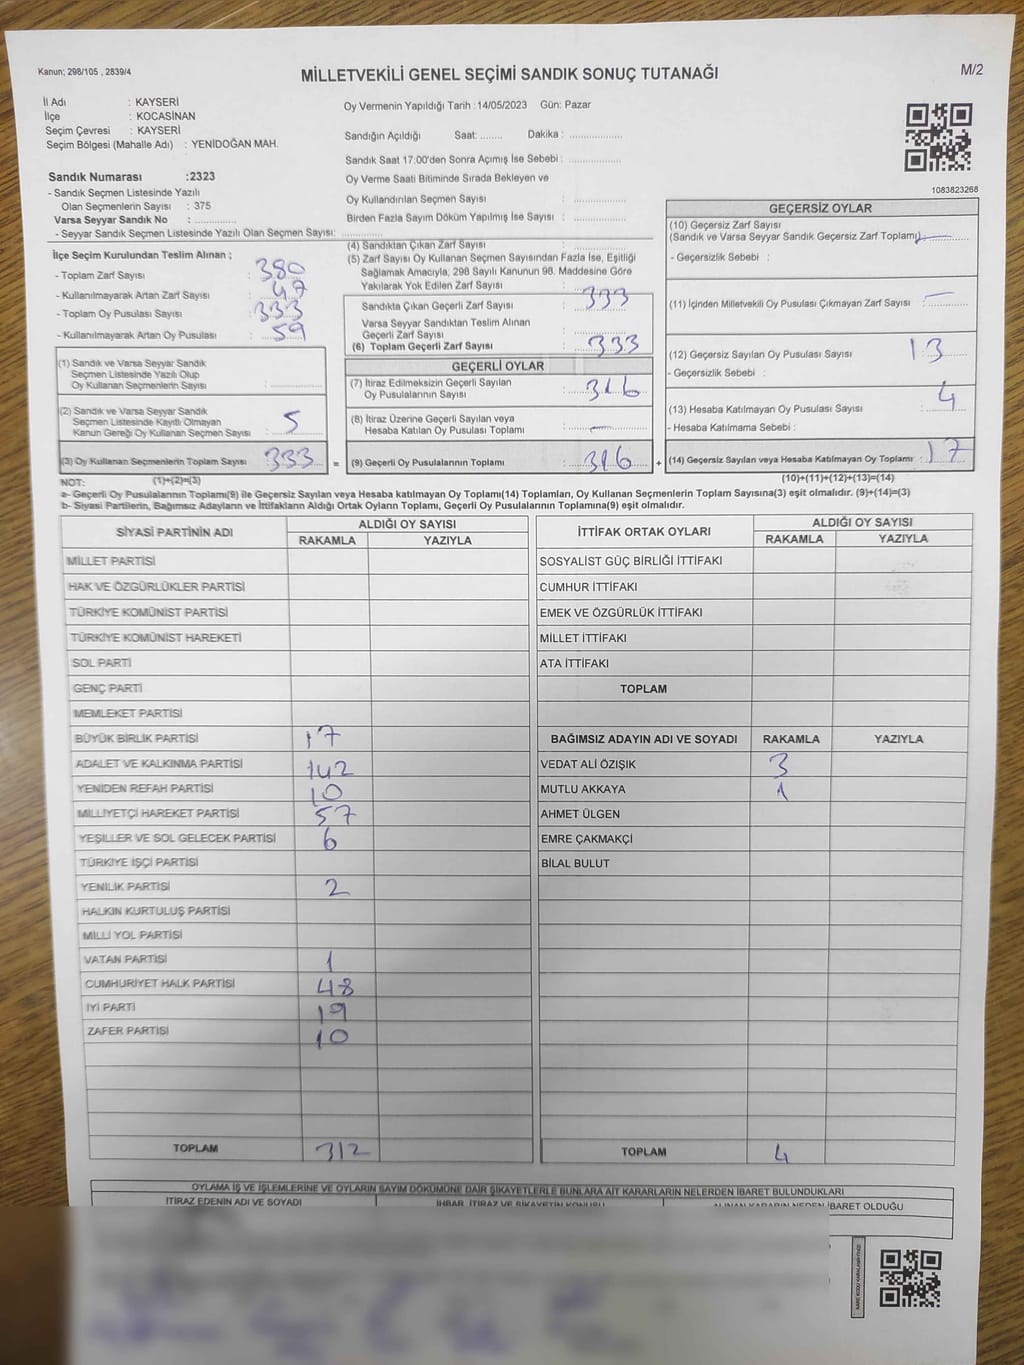 Kanun; 298/105 , 2839/4
MİLLETVEKİLİ GENEL SEÇİMİ SANDIK SONUÇ TUTANAĞI
M/2
İl Adı : KAYSERİ
İlçe : KOCASİNAN
Seçim Çevresi : KAYSERİ
Seçim Bölgesi (Mahalle Adı) : YENİDOĞAN MAH.
Sandık Numarası :2323
- Sandık Seçmen Listesinde Yazılı
Olan Seçmenlerin Sayısı : 375
Varsa Seyyar Sandık No : ..............
- Seyyar Sandık Seçmen Listesinde Yazılı Olan Seçmen Sayısı: ..............
Oy Vermenin Yapıldığı Tarih :14/05/2023 Gün: Pazar
Sandığın Açıldığı Saat: ........ Dakika : ..................
Sandık Saat 17:00'den Sonra Açımış İse Sebebi : ..................
Oy Verme Saati Bitiminde Sırada Bekleyen ve
Oy Kullandırılan Seçmen Sayısı : ..................
Birden Fazla Sayım Döküm Yapılmış İse Sayısı : ..................
1083823268
İlçe Seçim Kurulundan Teslim Alınan ;
- Toplam Zarf Sayısı : 380
- Kullanılmayarak Artan Zarf Sayısı : 47
- Toplam Oy Pusulası Sayısı : 333
- Kullanılmayarak Artan Oy Pusulası : 59
(1) Sandık ve Varsa Seyyar Sandık
Seçmen Listesinde Yazılı Olup
Oy Kullanan Seçmenlerin Sayısı : ..............
(2) Sandık ve Varsa Seyyar Sandık
Seçmen Listesinde Kayıtlı Olmayan
Kanun Gereği Oy Kullanan Seçmen Sayısı : 5
(3) Oy Kullanan Seçmenlerin Toplam Sayısı 333
(1)+(2)=(3)
(4) Sandıktan Çıkan Zarf Sayısı : ..............
(5) Zarf Sayısı Oy Kullanan Seçmen Sayısından Fazla İse, Eşitliği
Sağlamak Amacıyla, 298 Sayılı Kanunun 98. Maddesine Göre
Yakılarak Yok Edilen Zarf Sayısı :
Sandıkta Çıkan Geçerli Zarf Sayısı : 333
Varsa Seyyar Sandıktan Teslim Alınan
Geçerli Zarf Sayısı : ..............
(6) Toplam Geçerli Zarf Sayısı : 333
GEÇERLİ OYLAR
(7) İtiraz Edilmeksizin Geçerli Sayılan
Oy Pusulalarının Sayısı : 316
(8) İtiraz Üzerine Geçerli Sayılan veya
Hesaba Katılan Oy Pusulası Toplamı : —
= (9) Geçerli Oy Pusulalarının Toplamı : 316
GEÇERSİZ OYLAR
(10) Geçersiz Zarf Sayısı
(Sandık ve Varsa Seyyar Sandık Geçersiz Zarf Toplamı) —
- Geçersizlik Sebebi :
(11) İçinden Milletvekili Oy Pusulası Çıkmayan Zarf Sayısı : —
(12) Geçersiz Sayılan Oy Pusulası Sayısı : 13
- Geçersizlik Sebebi :
(13) Hesaba Katılmayan Oy Pusulası Sayısı : 4
- Hesaba Katılmama Sebebi :
+ (14) Geçersiz Sayılan veya Hesaba Katılmayan Oy Toplamı : 17
(10)+(11)+(12)+(13)=(14)
NOT:
a- Geçerli Oy Pusulalarının Toplamı(9) ile Geçersiz Sayılan veya Hesaba katılmayan Oy Toplamı(14) Toplamları, Oy Kullanan Seçmenlerin Toplam Sayısına(3) eşit olmalıdır. (9)+(14)=(3)
b- Siyasi Partilerin, Bağımsız Adayların ve İttifakların Aldığı Ortak Oyların Toplamı, Geçerli Oy Pusulalarının Toplamına(9) eşit olmalıdır.
SİYASİ PARTİNİN ADI ALDIĞI OY SAYISI
RAKAMLA YAZIYLA
MİLLET PARTİSİ
HAK VE ÖZGÜRLÜKLER PARTİSİ
TÜRKİYE KOMÜNİST PARTİSİ
TÜRKİYE KOMÜNİST HAREKETİ
SOL PARTİ
GENÇ PARTİ
MEMLEKET PARTİSİ
BÜYÜK BİRLİK PARTİSİ 17
ADALET VE KALKINMA PARTİSİ 142
YENİDEN REFAH PARTİSİ 10
MİLLİYETÇİ HAREKET PARTİSİ 57
YEŞİLLER VE SOL GELECEK PARTİSİ 6
TÜRKİYE İŞÇİ PARTİSİ
YENİLİK PARTİSİ 2
HALKIN KURTULUŞ PARTİSİ
MİLLİ YOL PARTİSİ
VATAN PARTİSİ 1
CUMHURİYET HALK PARTİSİ 48
İYİ PARTİ 19
ZAFER PARTİSİ 10
TOPLAM 312
İTTİFAK ORTAK OYLARI ALDIĞI OY SAYISI
RAKAMLA YAZIYLA
SOSYALİST GÜÇ BİRLİĞİ İTTİFAKI
CUMHUR İTTİFAKI
EMEK VE ÖZGÜRLÜK İTTİFAKI
MİLLET İTTİFAKI
ATA İTTİFAKI
TOPLAM
BAĞIMSIZ ADAYIN ADI VE SOYADI RAKAMLA YAZIYLA
VEDAT ALİ ÖZIŞIK 3
MUTLU AKKAYA 1
AHMET ÜLGEN
EMRE ÇAKMAKÇİ
BİLAL BULUT
TOPLAM 4
OYLAMA İŞ VE İŞLEMLERİNE VE OYLARIN SAYIM DÖKÜMÜNE DAİR ŞİKAYETLERLE BUNLARA AİT KARARLARIN NELERDEN İBARET BULUNDUKLARI
İTİRAZ EDENİN ADI VE SOYADI İHBAR, İTİRAZ VE ŞİKAYETİN KONUSU ALINAN KARARIN NEDEN İBARET OLDUĞU